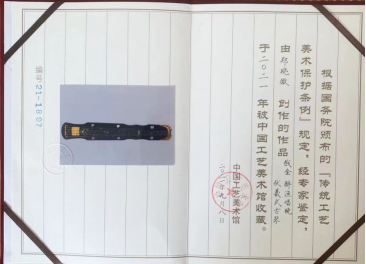 根据国务院颁布的「传统工艺
美术保护条例」规定，经专家鉴定，
由 创作的作品
伏羲式古琴
于二〇二一年被中国工艺美术馆收藏。
中国工艺美术馆
编号：21-1807